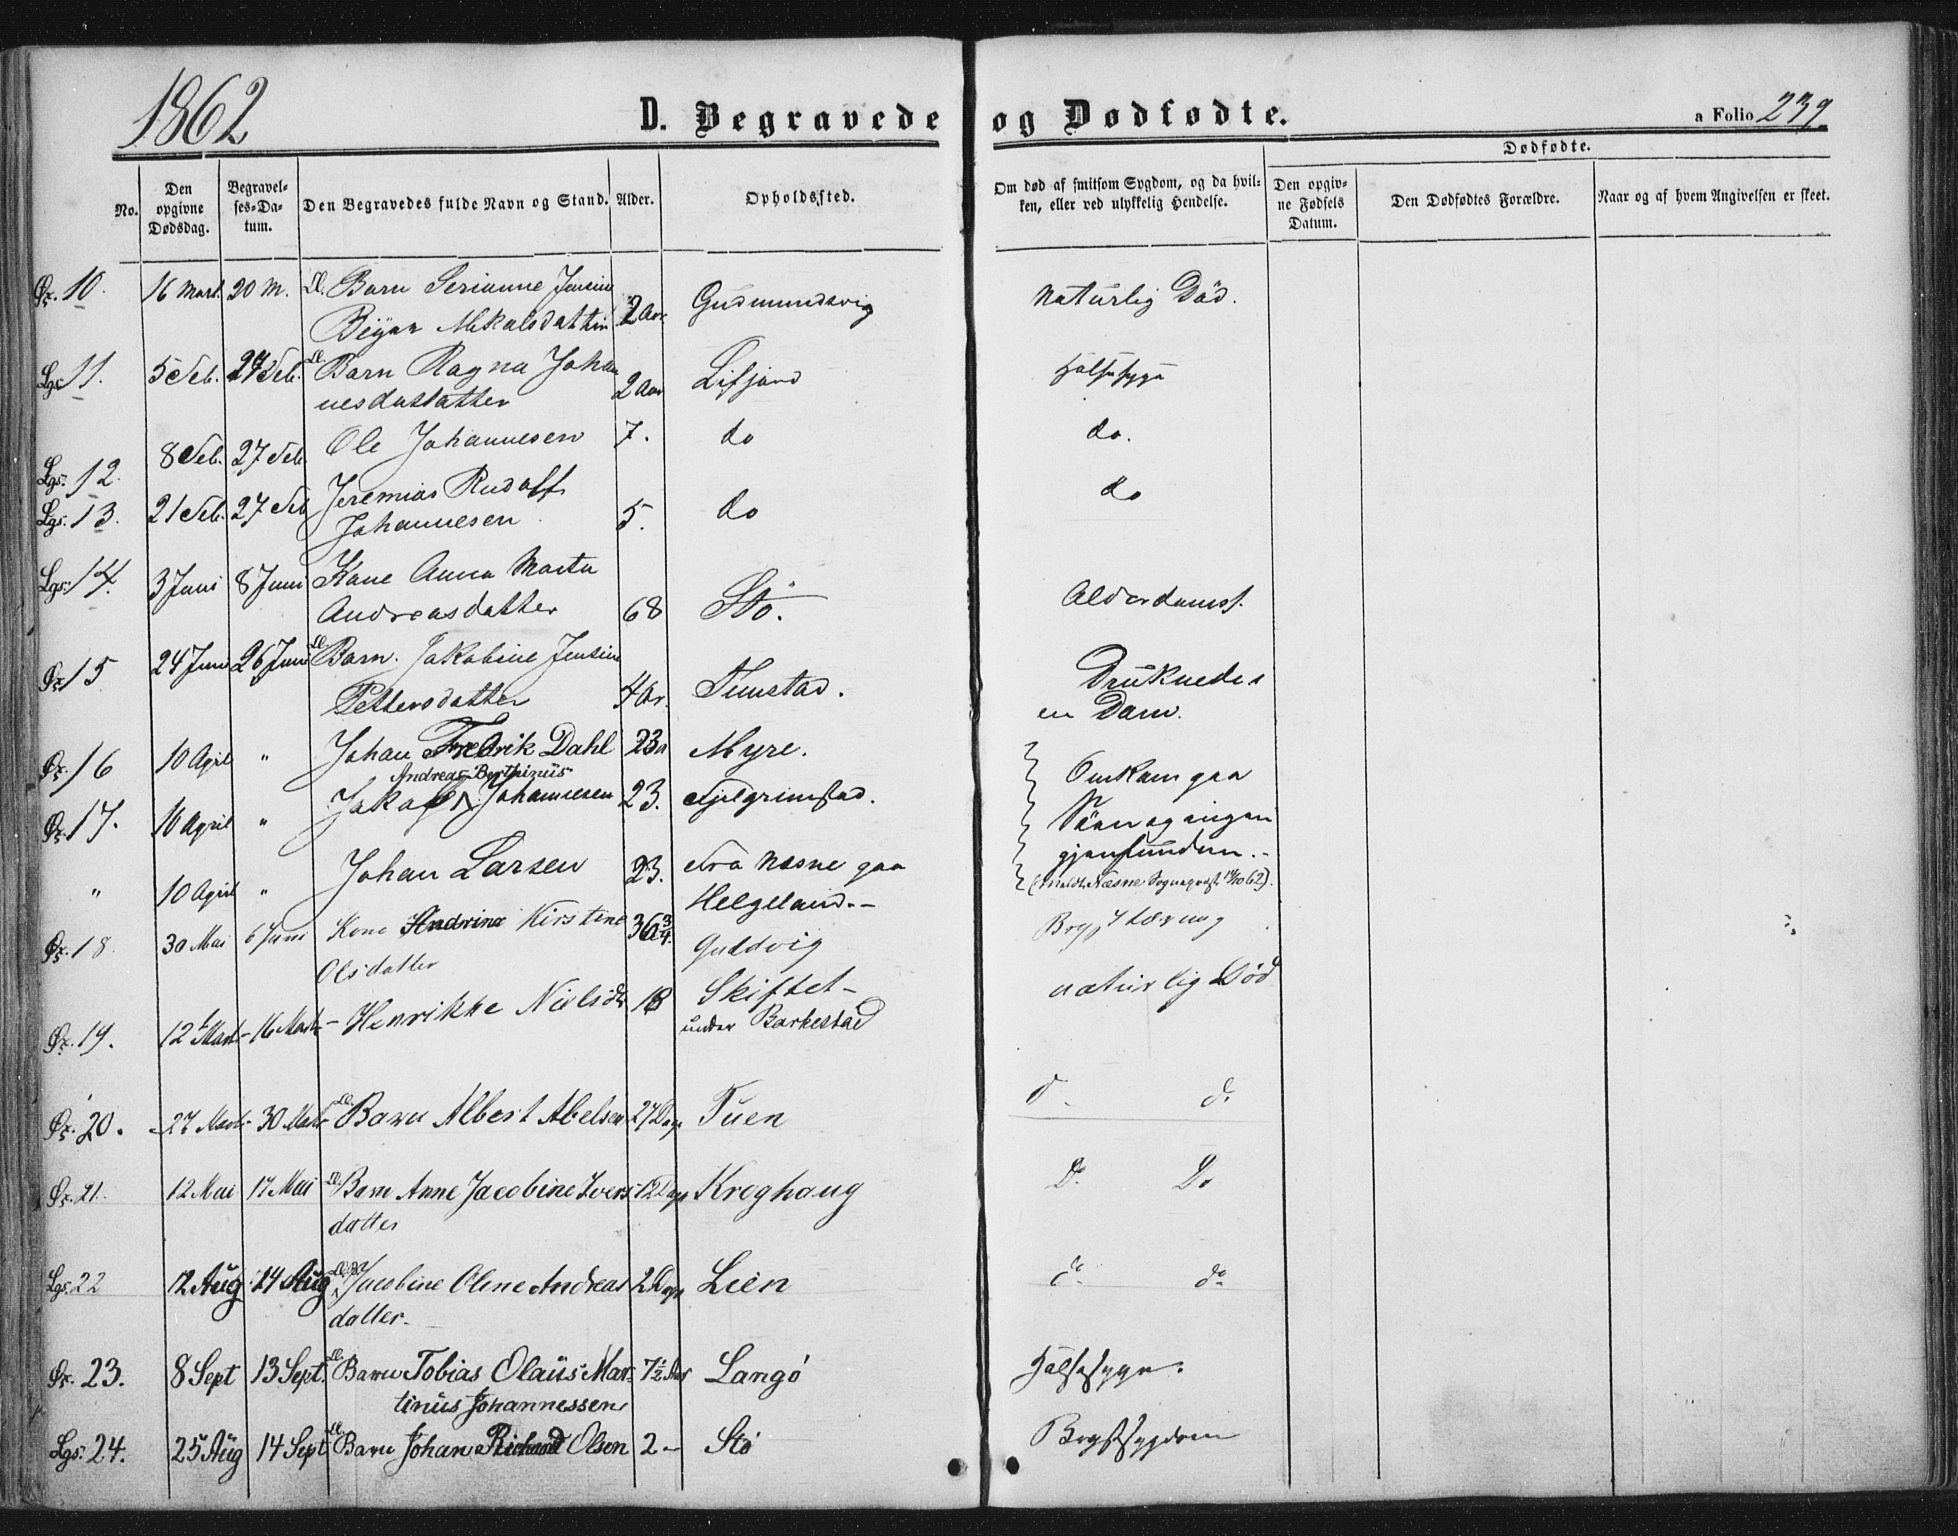 1862
D. Begravede og Dødfødte.
a Folio 239
No.
Den opgivne Dødsdag.
Begravelses-Datum.
Den Begravedes fulde Navn og Stand.
Alder.
Opholdssted.
Om død af smitsom Sygdom, og da hvilken, eller ved ulykkelig Hendelse.
Dødfødte.
Den opgivne Fødsels Datum.
Den Dødfødtes Forældre.
Naar og af hvem Angivelsen er skeet.
Øx. 10. 16 Mart. 20 M. Barn Serianne Jensine 2 Aar Gudmundsvig Naturlig Død.
Lgs. 11. 5 Feb. 27 Feb. Barn Ragna Johan 2 Aar Lifjord Halssyge
nesdatatter
Lgs. 12. 8 Feb. 27 Feb. Ole Johannesen 7. do do.
Lgs. 13. 21 Feb. 27 Feb Jeremias Rudolf 5. do do
Johannesen
Lgs. 14. 3 Juni 8 Juni Kone Anna Marta
Andreasdatter 68 Stö. Alderdomss.
Øx 15 24 Juni 26 Juni Barn. Jakobine Jensine
Pettersdatter 4 Ar. Tunstad. Druknede i
en Dam.
Øx. 16 10 April " Johan Fredrik Dahl 23 Myre. Omkom paa
Andreas Berthinüs
Øx. 17. 10 April " Jakob Johannesen 23. Søen og ingen
" 10 April " Johan Larsen 23. fra Næsne paa gjenfunden.
Helgeland.-
Øx. 18. 30 Mai 6 Juni Kone Andrina Kirstine 36 3/4 Guldvig Brysttæring
Olsdatter
Øx. 19. 12 Mart- 16 Mart- Henrikke Nielsdr 18 Skiftet- naturlig Død
under Barkestad
Øx. 20. 27 Mart- 30 Mart- Barn Albert Abelsen 27 Dage Tuen d. d.
Øx. 21. 12 Mai 17 Mai Barn Anne Jacobine Ivers- 12 Dage Kroghaug Do Do
datter
Lgs. 22 12 Aug 24 Aug Jacobine Oline Andreas 2 Dage Lien do do
datter-
Øx. 23. 8 Sept 13 Sept. Barn Tobias Olaüs Mar- 7½ Aar Langø Halssyge.
tinüs Johannessen
Lgs. 24. 25 Aüg 14 Sept Barn Johan Richard Olsen 2 - Stö Brystsygdom